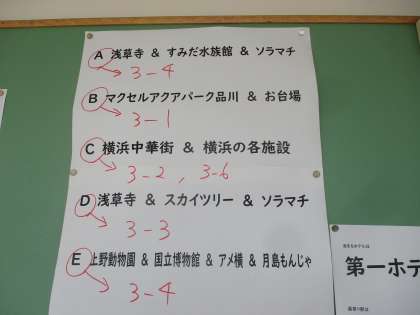 A 浅草寺 & すみだ水族館 & ソラマチ
3-4
B マクセルアクアパーク品川 & お台場
3-1
C 横浜中華街 & 横浜の各施設
3-2 , 3-6
D 浅草寺 & スカイツリー & ソラマチ
3-3
E 上野動物園 & 国立博物館 & アメ横 & 月島もんじゃ
3-4
第一ホテ